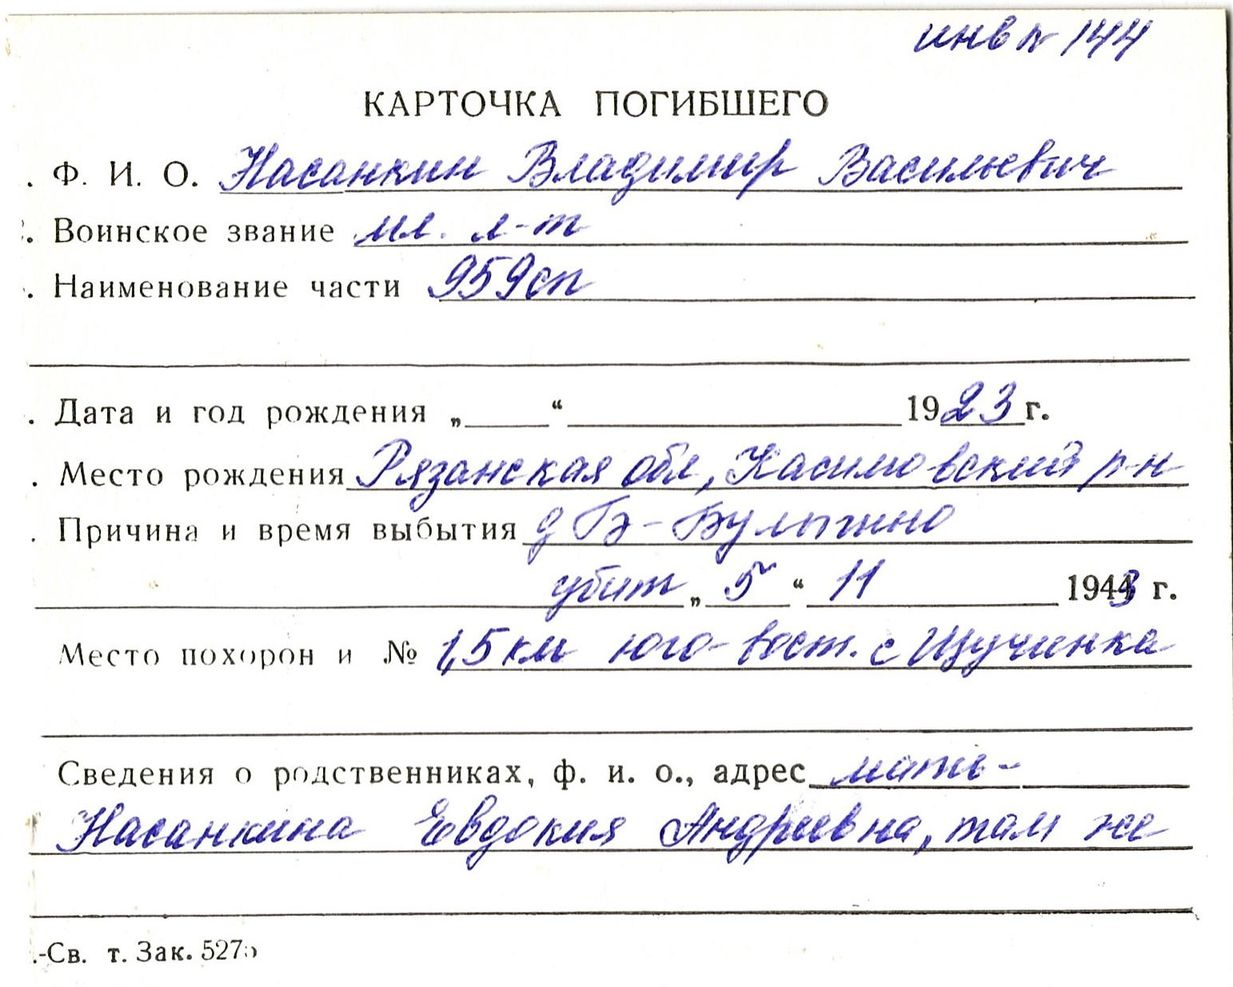 инв № 144
КАРТОЧКА ПОГИБШЕГО
. Ф. И. О. Насанкин Владимир Васильевич
. Воинское звание мл. л-т
. Наименование части 959сп
. Дата и год рождения „ “ 1923 г.
. Место рождения Рязанская обл, Касимовский р-н
. Причина и время выбытия д Б-Булыжино
убит „ 5 “ 11 1943 г.
Место похорон и № 1,5 км юго-вост. с Щучинка
Сведения о родственниках, ф. и. о., адрес мать-
Насанкина Евдокия Андреевна, там же
.-Св. т. Зак. 5275